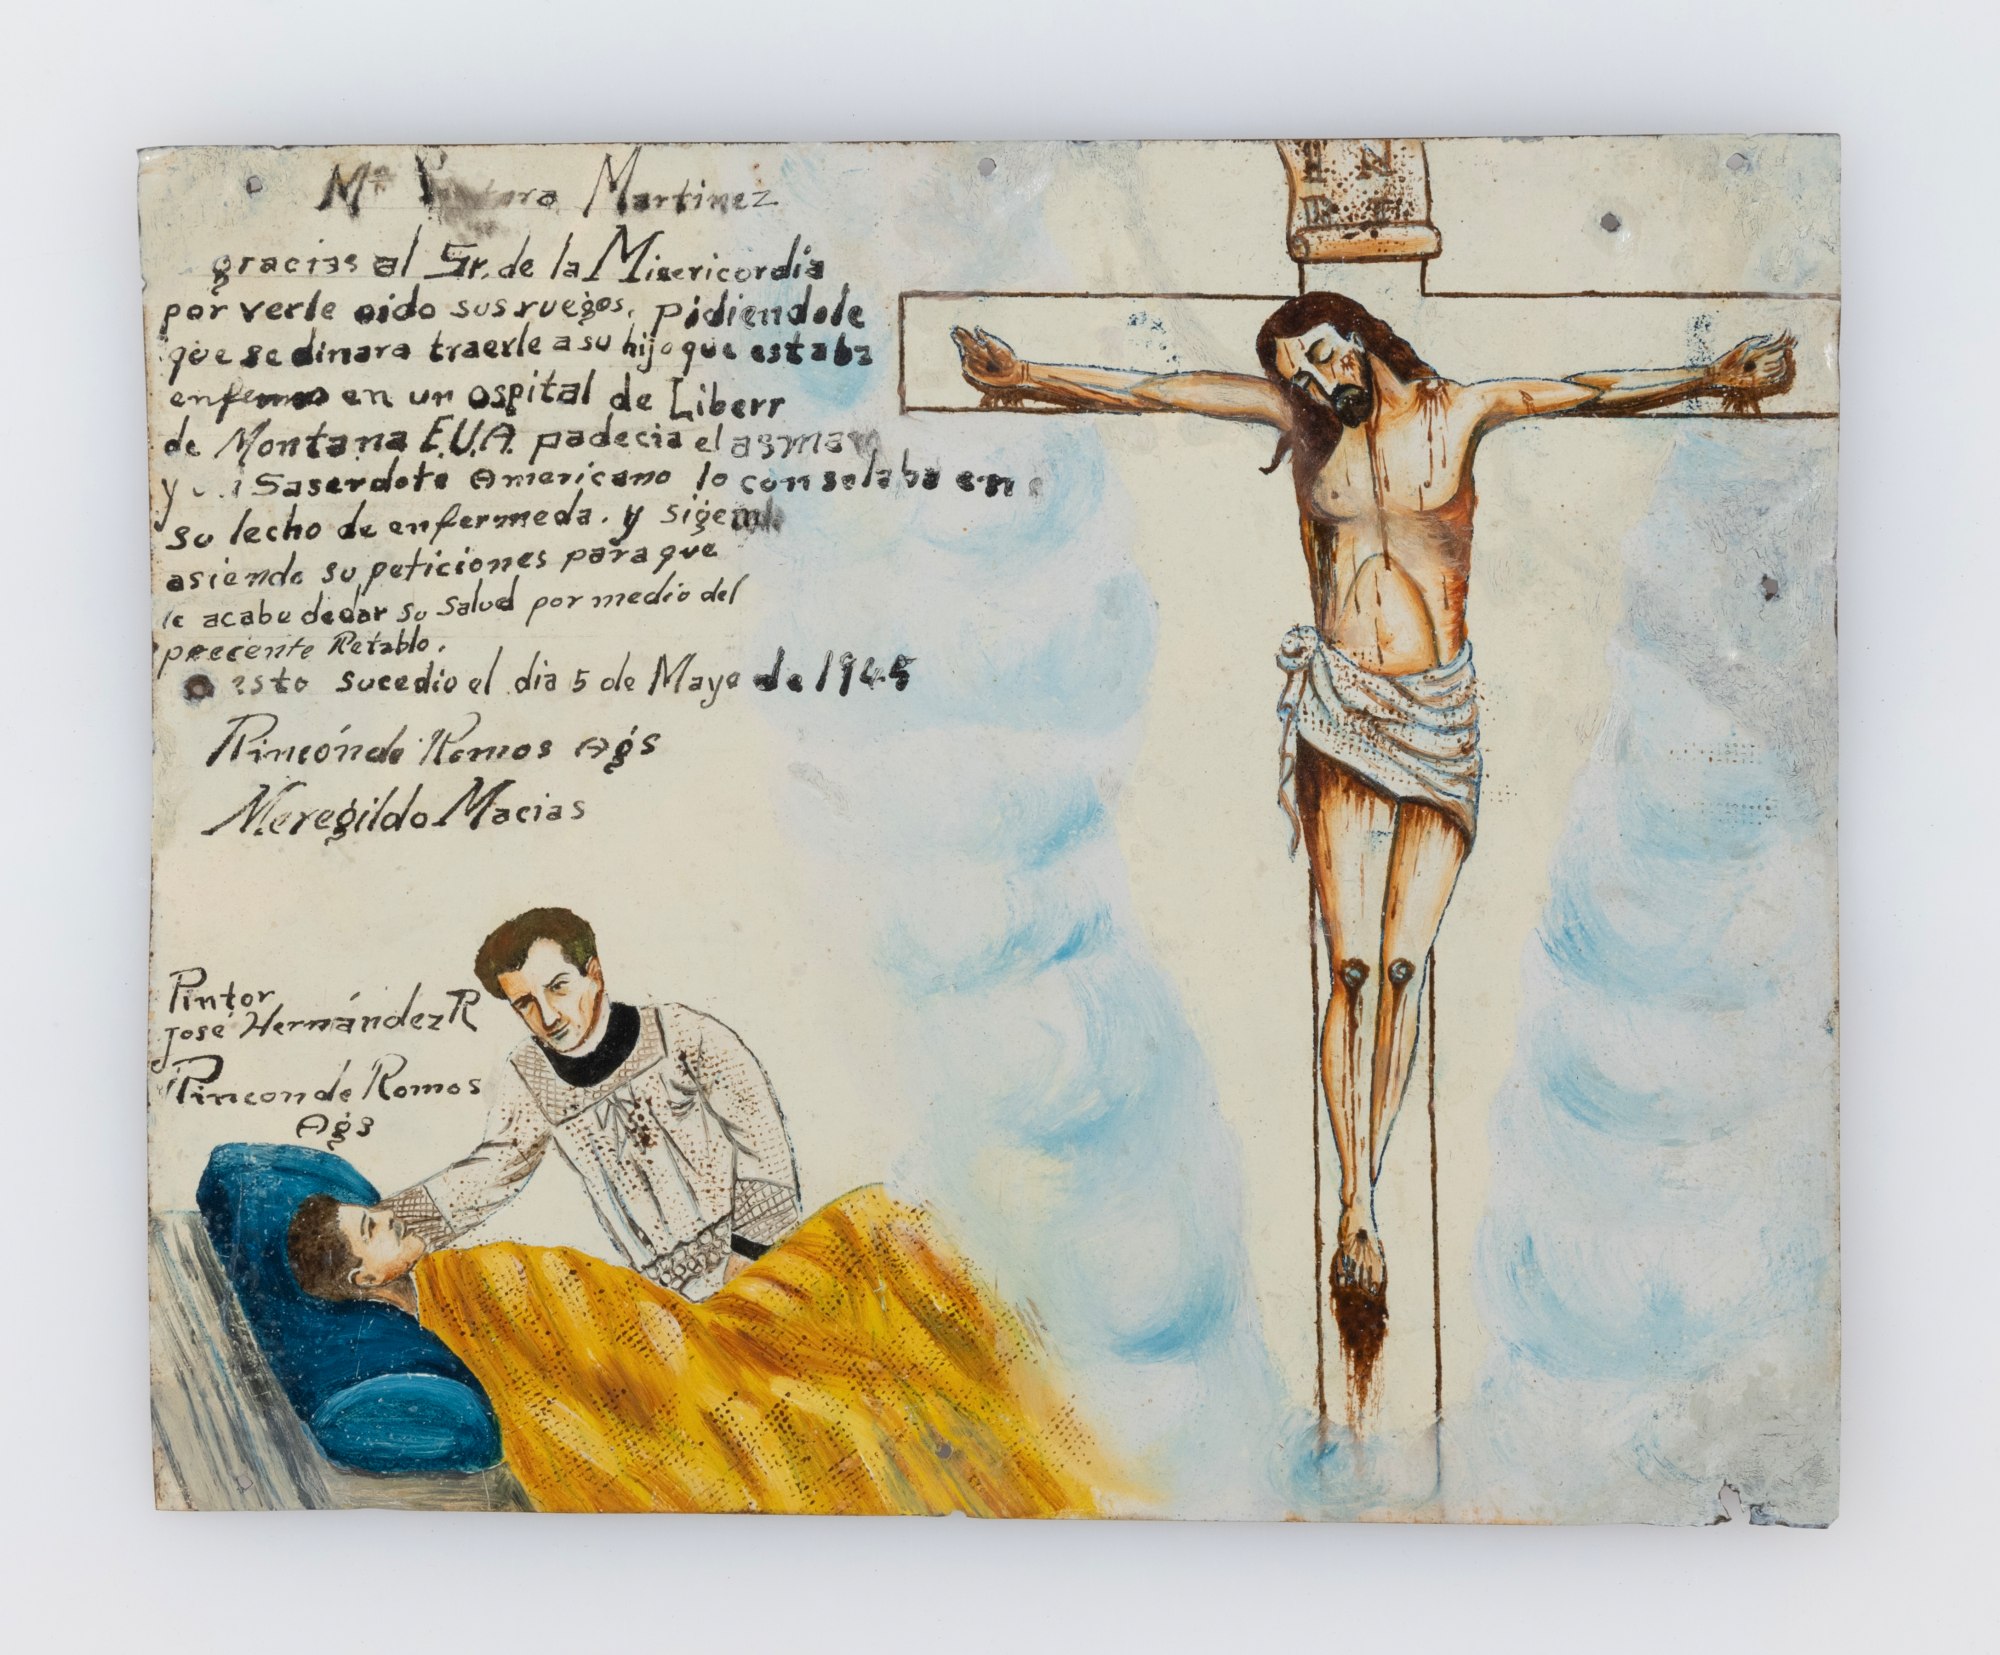 Mª Martinez
gracias al Sr. de la Misericordia
por verle oido sus ruegos, pidiendole
que se dinara traerle a su hijo que estaba
enfermo en un ospital de Liberr
de Montana E.U.A. padecia el asma
y Saserdote Americano lo consolaba en
su lecho de enfermeda. y sigem
asiendo su peticiones para que
le acabe dedar su Salud por medio del
precente Retablo.
esto sucedio el dia 5 de Mayo de 1945
Rincón de Romos Ags
Meregildo Macias
Pintor
José Hernández R
Rincon de Romos
Ags
I N
R I